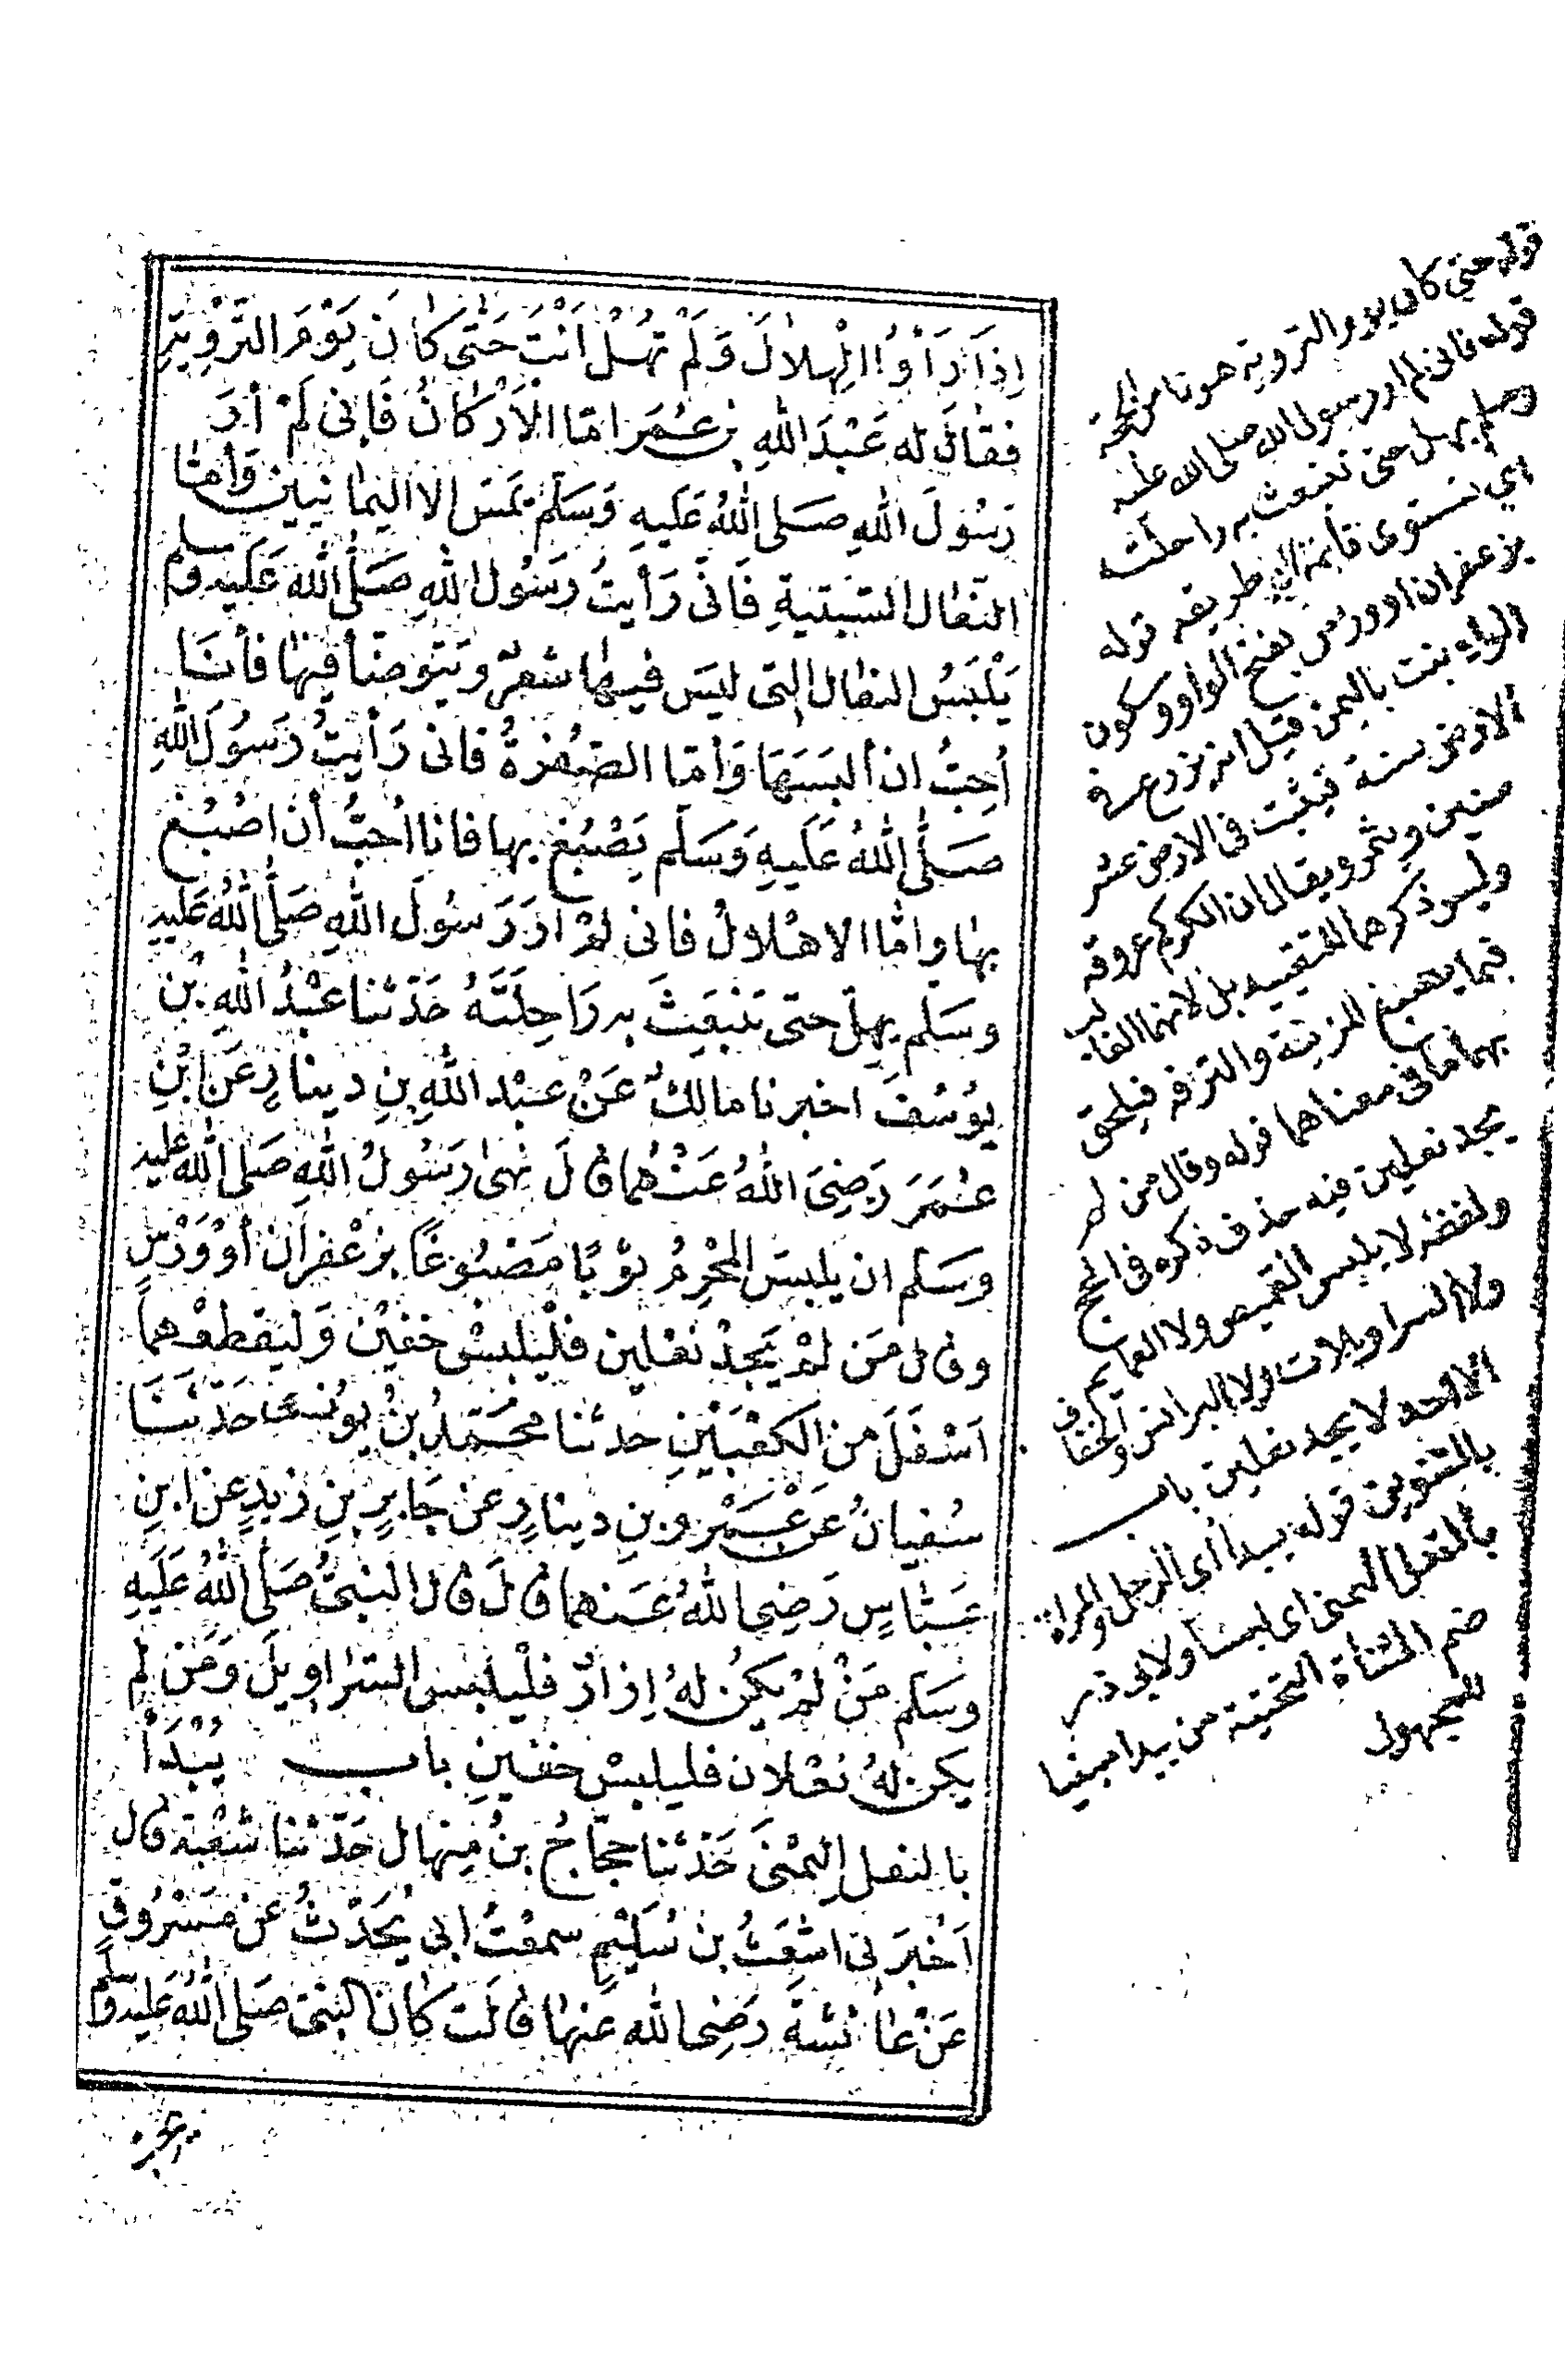 اِذَا رَأَوُا الْهِلَالَ وَلَمْ تُهِلَّ اَنْتَ حَتّٰى كَانَ يَوْمَ التَّرْوِيَةِ
فقَالَ له عَبْدَ اللهِ بن عُمَرَ امّا الْاَرْكَانُ فَإنى لَمْ أرَ
رَسُولَ اللهِ صَلى اللهُ عَلَيهِ وَسَلَّمَ يَمَسّ الا اليَمانيين وَأمّا
النّعَال السّبتيةِ فَانّى رَأيتُ رَسُول اللهِ صَلَّى اللهُ عَلَيه وسلم
يَلْبَسُ النعَال التى ليسَ فيها شعرٌ ويَتوضّأ فيهَا فأنَا
اُحِبُّ ان ألبَسَهَا وَأمّا الصُّفرَةُ فانى رَأيتُ رَسُولَ اللهِ
صَلَّى اللهُ عَلَيهِ وَسَلّم يَصْبُغ بها فانا اُحبُّ أن اصْبُغ
بهَا وامّا الاهْلالُ فانى لمْ ارَ رَسُولَ اللهِ صَلَّى اللهُ عَلَيهِ
وسَلم يهلّ حتى تنْبعَثَ به رَاحِلَتَهُ حَدّثنا عَبْدُ اللهِ بْن
يوُسُفَ اخبرنا مالكٌ عَنْ عبْد اللهِ بنِ دينارٍ عَن ابْنِ
عُمَرَ رَضِىَ اللهُ عَنْهُما قالَ نهىٰ رَسُولُ اللهِ صَلى الله عليه
وسَلم ان يلبسَ المحْرِمُ ثوْبًا مَصْبُوغًا بزعْفرَان أوْوَرْسٍ
وقال مَن لمْ يَجدْ نعْلين فلْيلبسْ خفيْن وَليقطعْهما
اسْفَلَ من الكعْبَيْنِ حدثنا محَمّدُ بنُ يوُسفَ حَدّثنَا
سُفيانُ عَن عَمْرو بنِ دينارٍ عن جَابرِ بنِ زيدٍ عن ابنِ
عَبّاسٍ رَضِى اللهُ عَنهما قالَ قال النبىُّ صَلَّى اللهُ عَلَيهِ
وسَلم مَنْ لمْ يكُن لهُ اِزارٌ فلْيلبس السّراويلَ وَمَن لم
يكن لهُ نعْلان فليلبسْ خفينِ باب يُبْدَأُ
بالنعل اليُمْنىَ حَدّثنا حجّاجُ بنُ مِنهال حَدّثنا شعْبة قال
اَخْبرَنى اشعَثُ بن سُلَيْمٍ سمعْتُ ابى يُحَدّثُ عن مَسْرُوقٍ
عَنْ عائشةَ رَضِى الله عنهَا قالَت كانَ النبىّ صَلى اللهُ عَليه وسلم
قوله حتى كان يوم التروية هو ثامن الحجة
قوله فانى لم ار رسول الله صلى الله عليه
وسلم يهل حتى تنبعث به راحلته
اى تستوى قائمة الى طريقه قوله
بزعفران او ورس بفتح الواو وسكون
الراء نبت باليمن قيل انه يزرع
الارض سنة فيثبت فى الارض عشر
سنين ويثمر ويقال ان الكركم عروقه
وليس ذكرهما للتقييد بل لانهما الغالب
فيما يصبغ للزينة والترفه فيلحق
بهما ما فى معناهما قوله وقال من لم
يجد نعلين فيه حذف ذكره فى الحج
ولفظه لا يلبس القميص ولا العمايم
ولا السراويلات ولا البرانس والخفاف
الا احد لا يجد نعلين باب
بالتنوين قوله يبدا اى الرجل والمراة
بالنعل اليمنى اى لبسا ولابى ذر
ضم المثناة التحتية من يبدا مبنيا
للمجهول